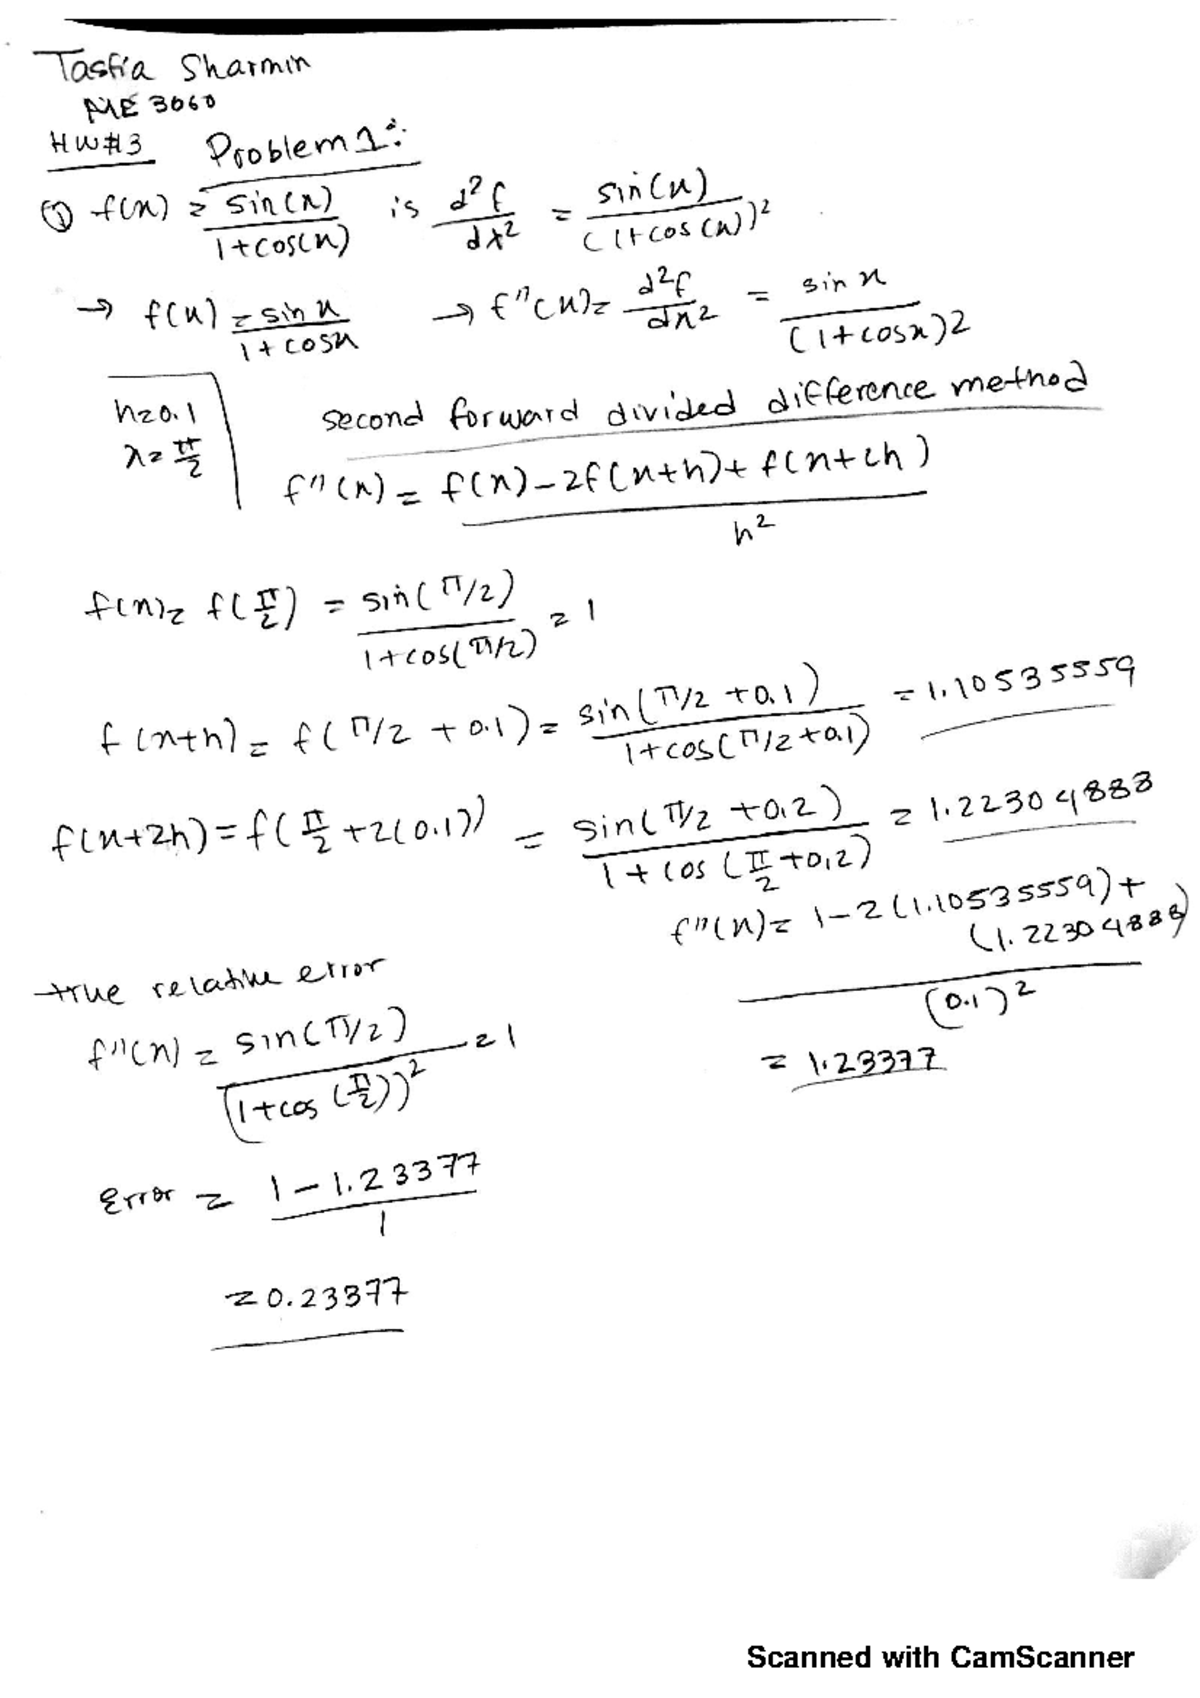 Tasfia Sharmin
ME 3060
HW#3 Problem 1:
① f(x) = sin(x) / 1+cos(x) is d²f/dx² = sin(x) / (1+cos(x))²
→ f(x) = sin x / 1+cosx → f"(x) = d²f/dx² = sin x / (1+cosx)2
h=0.1
x=π/2
second forward divided difference method
f"(x) = f(x)-2f(x+h)+f(x+2h) / h²
f(x)= f(π/2) = sin(π/2) / 1+cos(π/2) = 1
f(x+h) = f(π/2 +0.1) = sin(π/2 +0.1) / 1+cos(π/2+0.1) = 1.10535559
f(x+2h) = f(π/2 +2(0.1)) = sin(π/2 +0.2) / 1+cos(π/2+0.2) = 1.22304888
f"(x)= 1-2(1.10535559)+(1.22304888) / (0.1)²
= 1.23377
true relative error
f"(x) = sin(π/2) / (1+cos(π/2))² = 1
Error = 1-1.23377 / 1
= 0.23377
Scanned with CamScanner